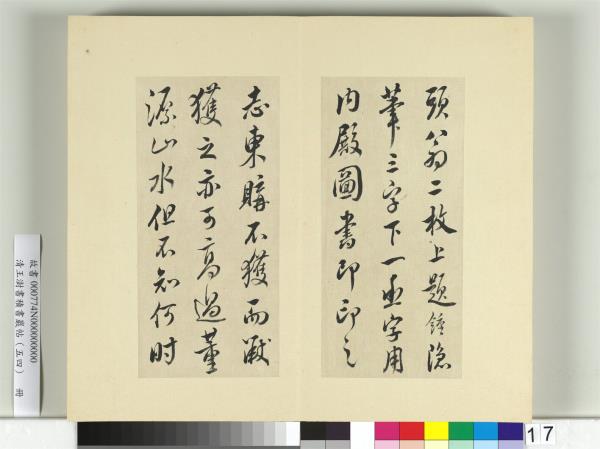 頭翁二枚上題鍾隱
筆三字下一字用
內殿圖書印印之
志東購不獲而
獲之亦可高過董
源山水但不知何时
故書000774N000000000
清王澍書積書巖帖（五四） 冊
17